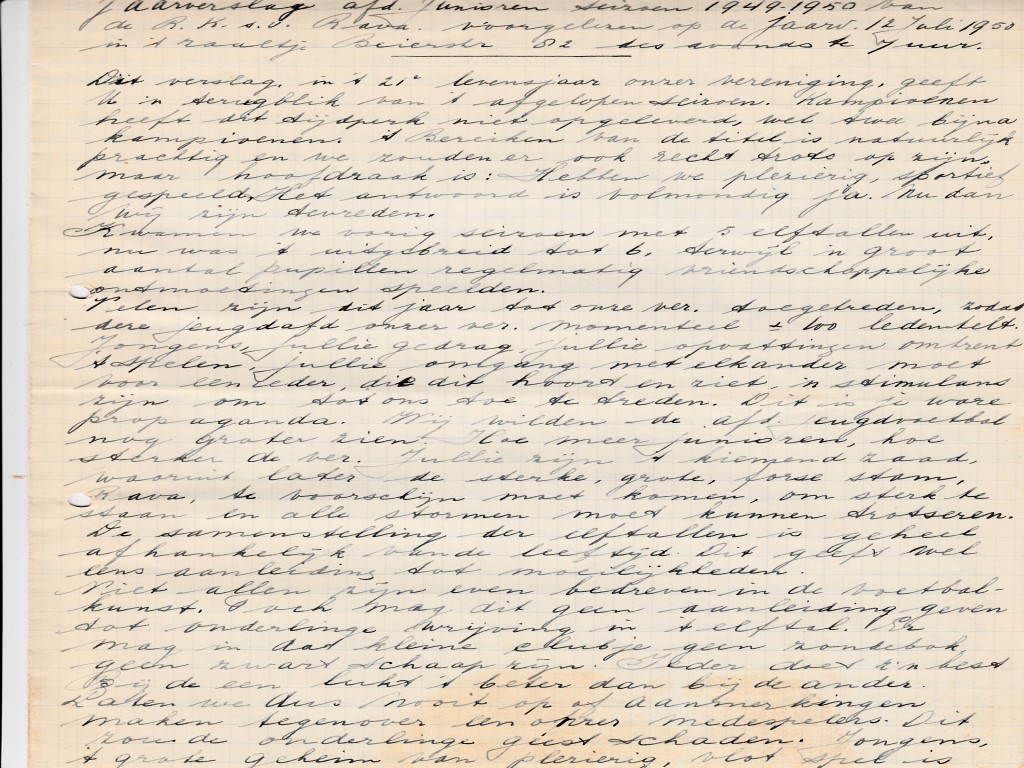 Jaarverslag afd. Junioren Seizoen 1949-1950 van
de R.K.s.v. Rava. voorgelezen op de Jaarv. 12 Juli 1950
in 't zaaltje Beierstr 82 des avonds te 7 uur.
Dit verslag, in 't 21e levensjaar onzer vereniging, geeft
U 'n terugblik van 't afgelopen seizoen. Kampioenen
heeft dit tijdperk niet opgeleverd, wel twee bijna
kampioenen. 't Bereiken van de titel is natuurlijk
prachtig en we zouden er ook recht trots op zijn,
maar hoofdzaak is: Hebben we plezierig, sportief
gespeeld. Het antwoord is volmondig ja. Nu dan
wij zijn tevreden.
Kwamen we vorig seizoen met 5 elftallen uit,
nu was 't uitgebreid tot 6, terwijl 'n groot
aantal pupillen regelmatig vriendschappelijke
ontmoetingen speelden.
Velen zijn dit jaar tot onze ver. toegetreden, zodat
deze jeugdafd onzer ver. momenteel ± 100 leden telt.
Jongens, jullie gedrag, jullie opvattingen omtrent
't spelen, jullie omgang met elkander moet
voor een ieder, die dit hoort en ziet, 'n stimulans
zijn om tot ons toe te treden. Dit is je ware
propaganda. Wij wilden de afd. jeugdvoetbal
nog groter zien. Hoe meer junioren, hoe
sterker de ver. Jullie zijn 't kiemend zaad,
waaruit later de sterke, grote, forse stam,
Rava, te voorschijn moet komen, om sterk te
staan en alle stormen moet kunnen trotseren.
De samenstelling der elftallen is geheel
afhankelijk van de leeftijd. Dit geeft wel
eens aanleiding tot moeilijkheden.
Niet allen zijn even bedreven in de voetbal-
kunst. Toch mag dit geen aanleiding geven
tot onderlinge wrijving in 't elftal. Er
mag in dat kleine clubje geen zondebok,
geen zwart schaap zijn. Ieder doet z'n best
Bij de een lukt 't beter dan bij de ander.
Laten we dus nooit op of aanmerkingen
maken tegenover een onzer medespelers. Dit
zou de onderlinge geest schaden. Jongens,
't grote geheim van plezierig, vlot spel is